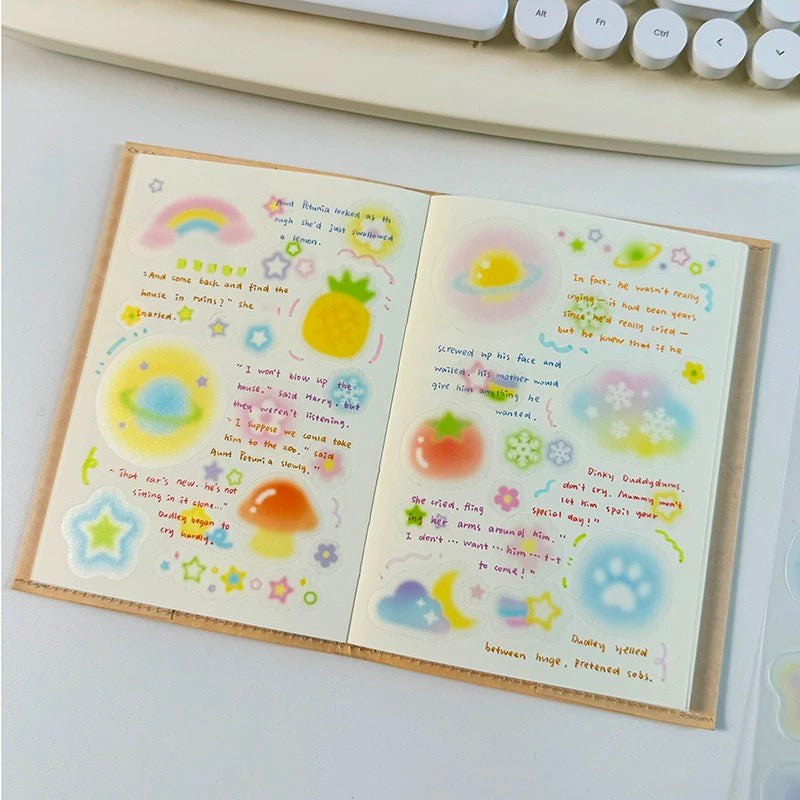 Alt
Fn
Ctrl
Aunt Petunia looked as th
ough she'd just swallowed
a lemon.
"And come back and find the
house in ruins?" she
snarled.
"I won't blow up the
house." said Harry. but
they weren't listening.
"I suppose we could take
him to the zoo." said
Aunt Petunia slowly."
"That car's new. he's not
sitting in it alone..."
Dudley began to
cry hardly.
In fact. he wasn't really
crying — it had been years
since he'd really cried —
but he knew that if he
screwed up his face and
wailed. his mother would
give him anything he
wanted.
Dinky Duddydums.
don't cry. Mummy won't
let him spoil your
special day!"
She cried. fling
ing her arms around him."
I don't ... want ... him ... t-t
to come!"
Dudley yelled
between huge, pretened sobs.